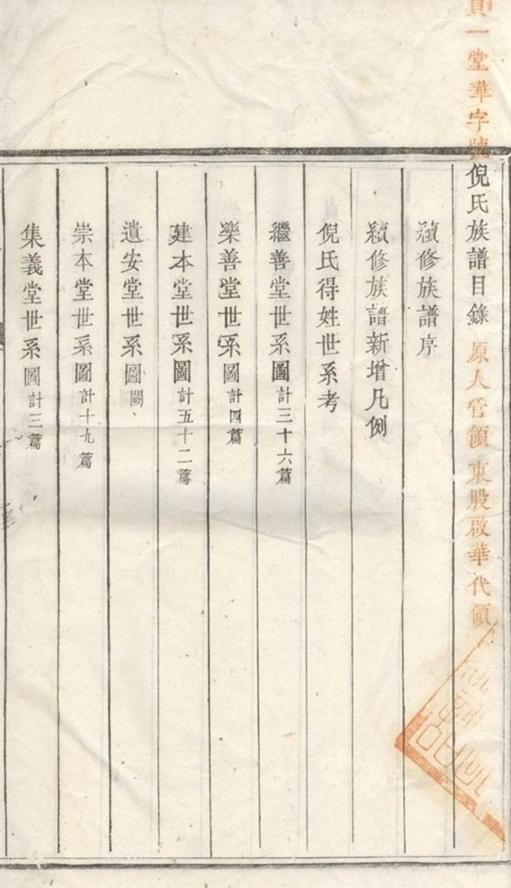 一堂華字號倪氏族譜目錄 原人管領 東股啟華代領
續修族譜序
續修族譜新增凡例
倪氏得姓世系考
繼善堂世系圖計三十六篇
樂善堂世系圖計四篇
建本堂世系圖計五十二篇
遺安堂世系圖闕
崇本堂世系圖計十九篇
集義堂世系圖計三篇